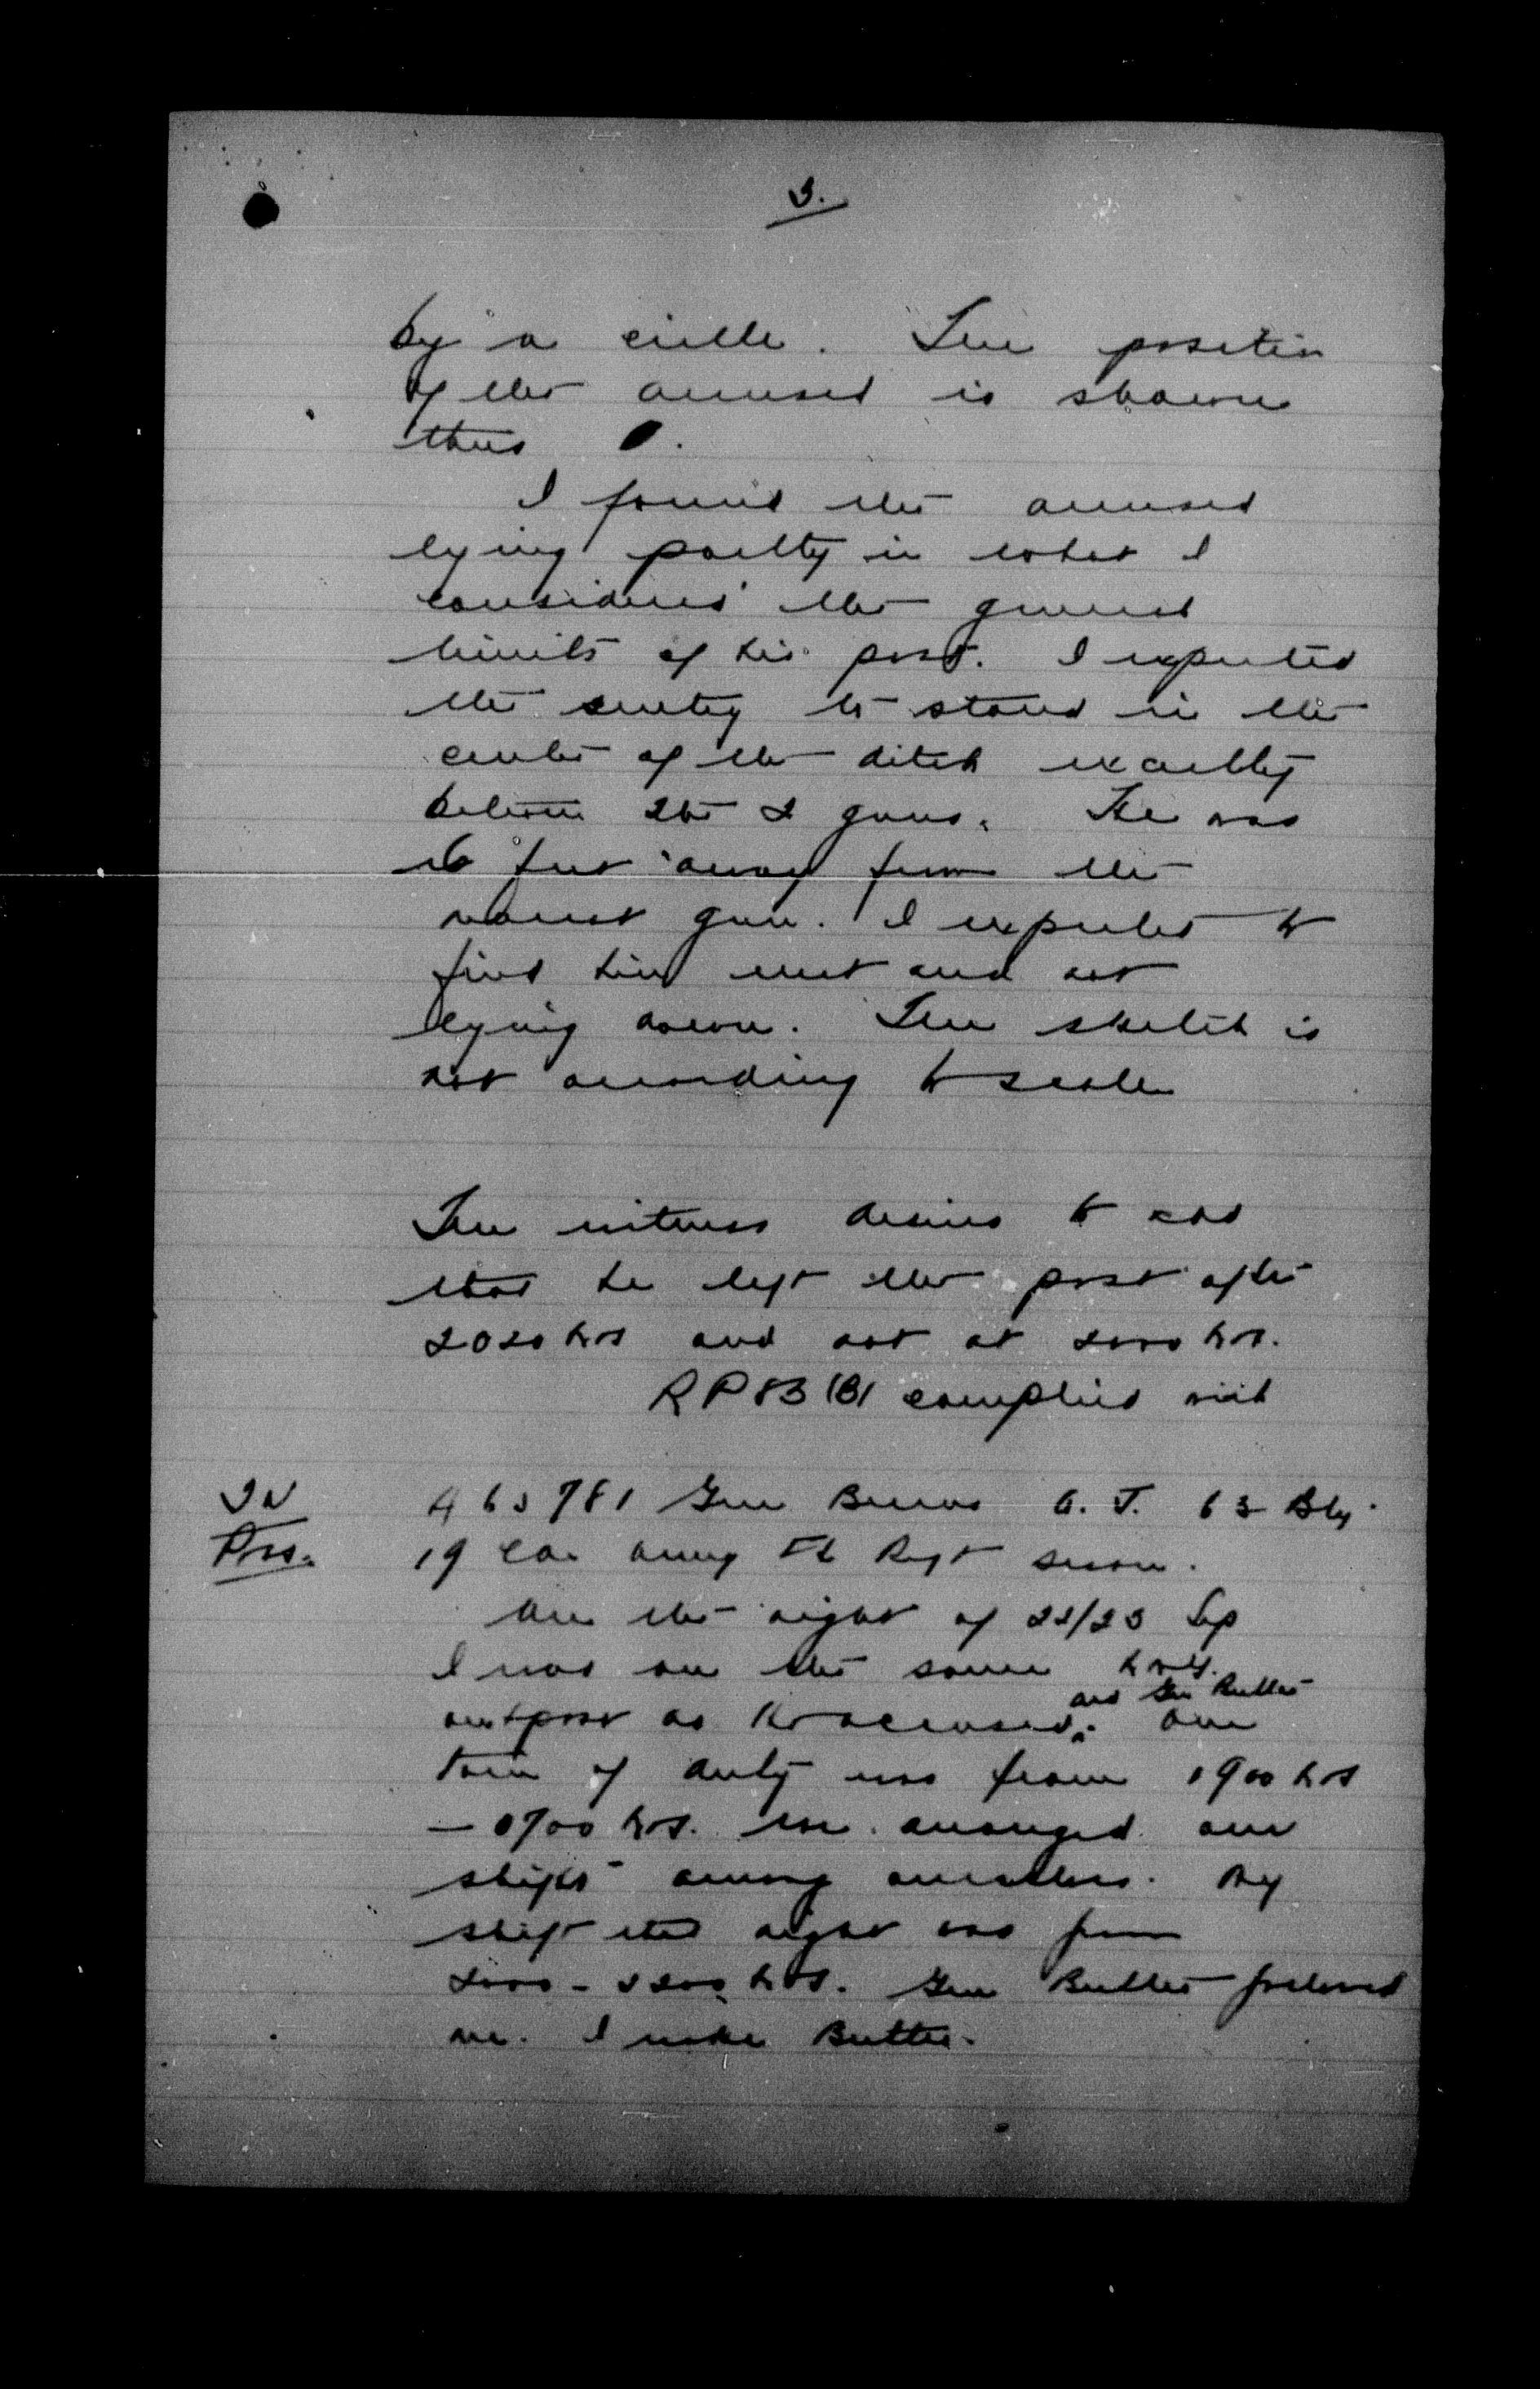 3.
by a circle. The position
of the accused is shown
thus 0.
I found the accused
lying partly in what I
considered the general
limits of his post. I expected
the sentry to stand in the
centre of the ditch exactly
between the 2 guns. He was
feet away from the
nearest gun. I expected to
find him erect and not
lying down. The sketch is
not according to scale
The witness desires to add
that he left the post after
2020 hrs and not at 2000 hrs.
RP 83 (B) complied with
Pros. Gnr Burns 63 Bty
19 Cdn Army Fd Regt sworn.
On the night of 22/23 Sep
I was on the same
outpost as the accused and Gnr Butler. Our
tour of duty was from 1900 hrs
- 0700 hrs. We arranged our
shifts among ourselves. My
shift that night was from
2000 - 2200 hrs. Gnr Butler followed
me. I woke Butler.